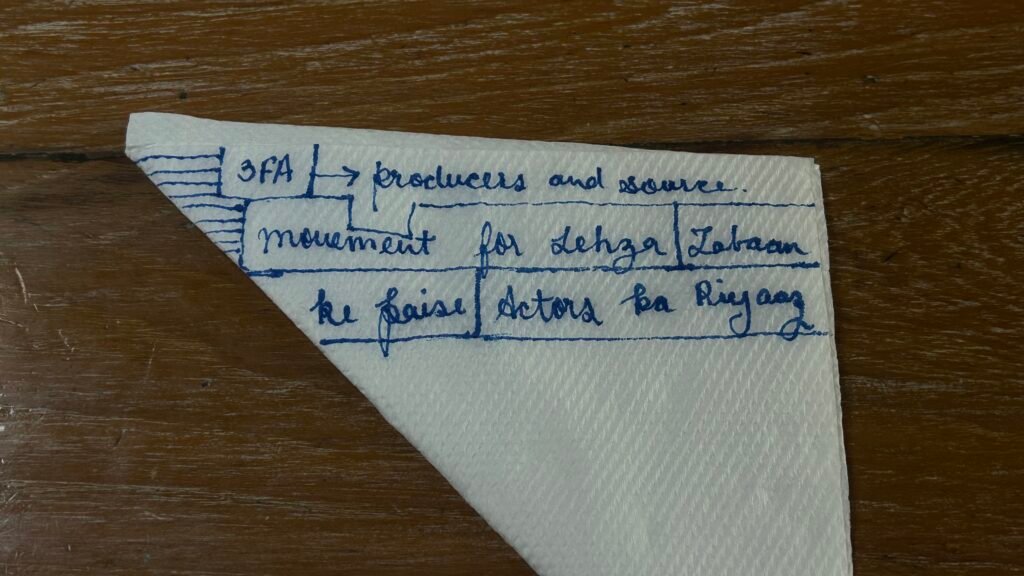 3FA → producers and source.
movement for Lehza Zabaan
ke paise Actors ka Riyaaz